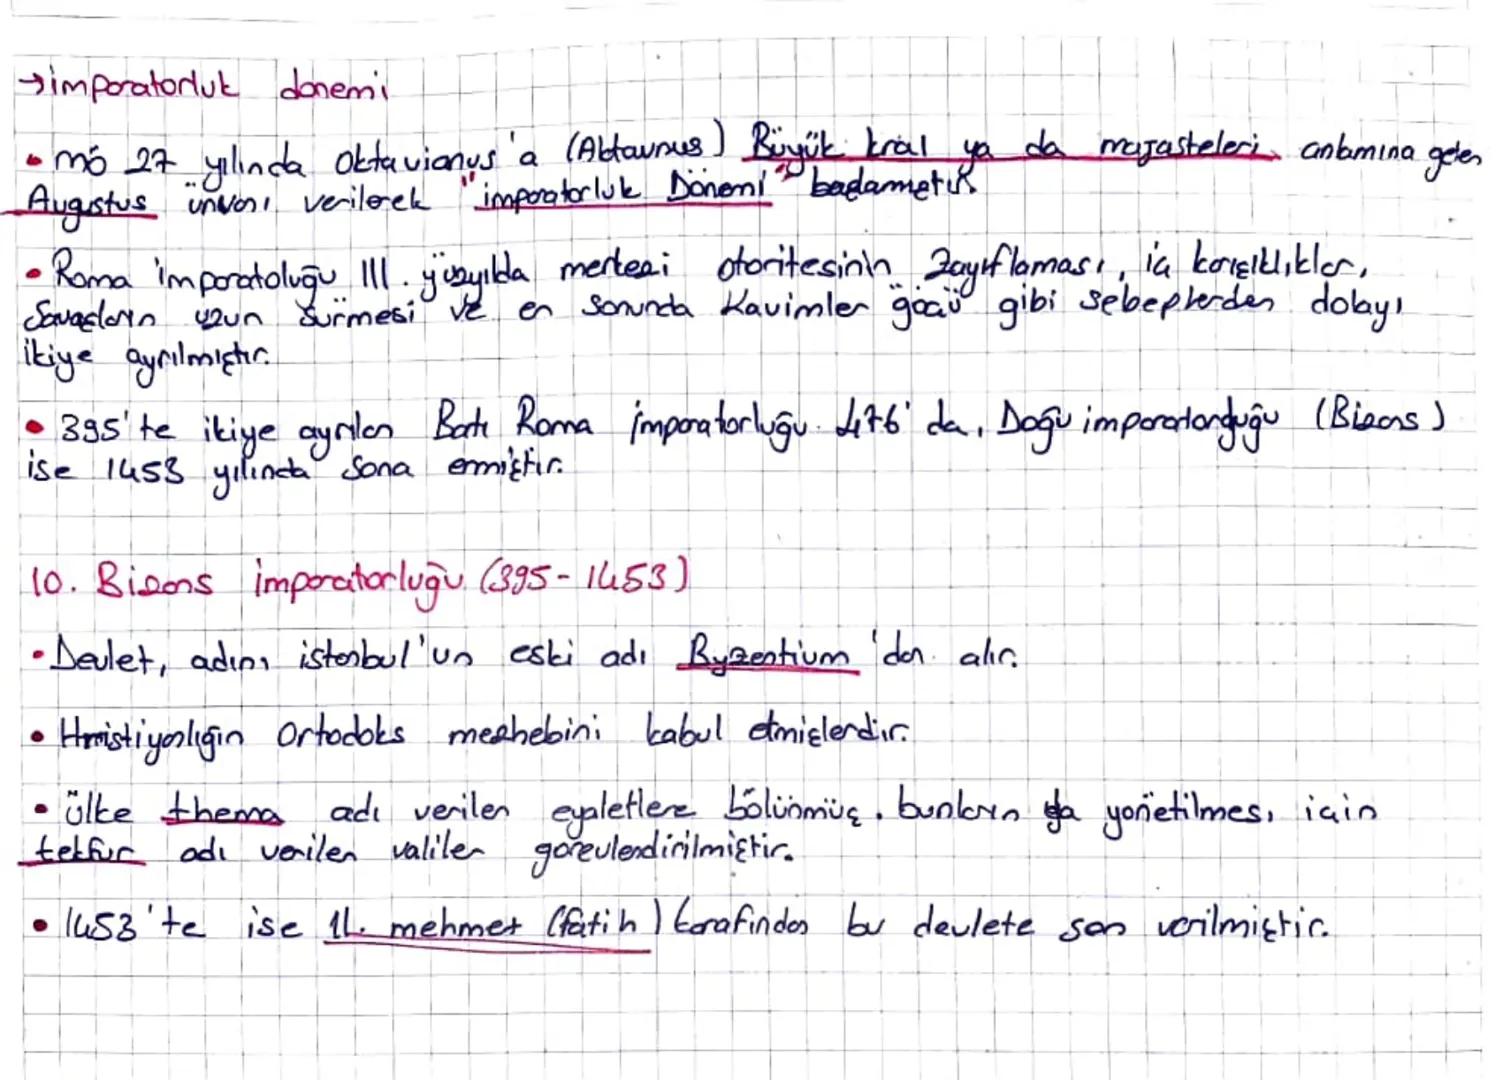 →imparatorluk dönemi
• mö 27 yılında Oktavianus'a (Abtavnus) Büyük kral ya da majasteleri anlamına gelen
Augustus ünvanı verilerek "imparatorluk Dönemi" başlamıştır.
• Roma imparatoluğu III. yüzyılda merkezi otoritesinin zayıflaması, iç karışıklıklar,
Savaşların uzun sürmesi ve en sonunda Kavimler göçü gibi sebeplerden dolayı
ikiye ayrılmıştır.
• 395'te ikiye ayrılan Batı Roma İmparatorluğu 476'da, Doğu imparatorduğu (Bizans)
ise 1453 yılında sona ermiştir.
10. Bizans imparatorluğu (395-1453)
• Devlet, adını istanbul'un eski adı Byzantium'dan alır.
• Hristiyanlığın Ortodoks mezhebini kabul etmişlerdir.
• ülke thema adı verilen eyaletlere bölünmüş. bunların da yönetilmesi için
tekfur adı verilen valiler görevlendirilmiştir.
• 1453'te ise II. mehmet (fatih) tarafından bu devlete son verilmiştir.